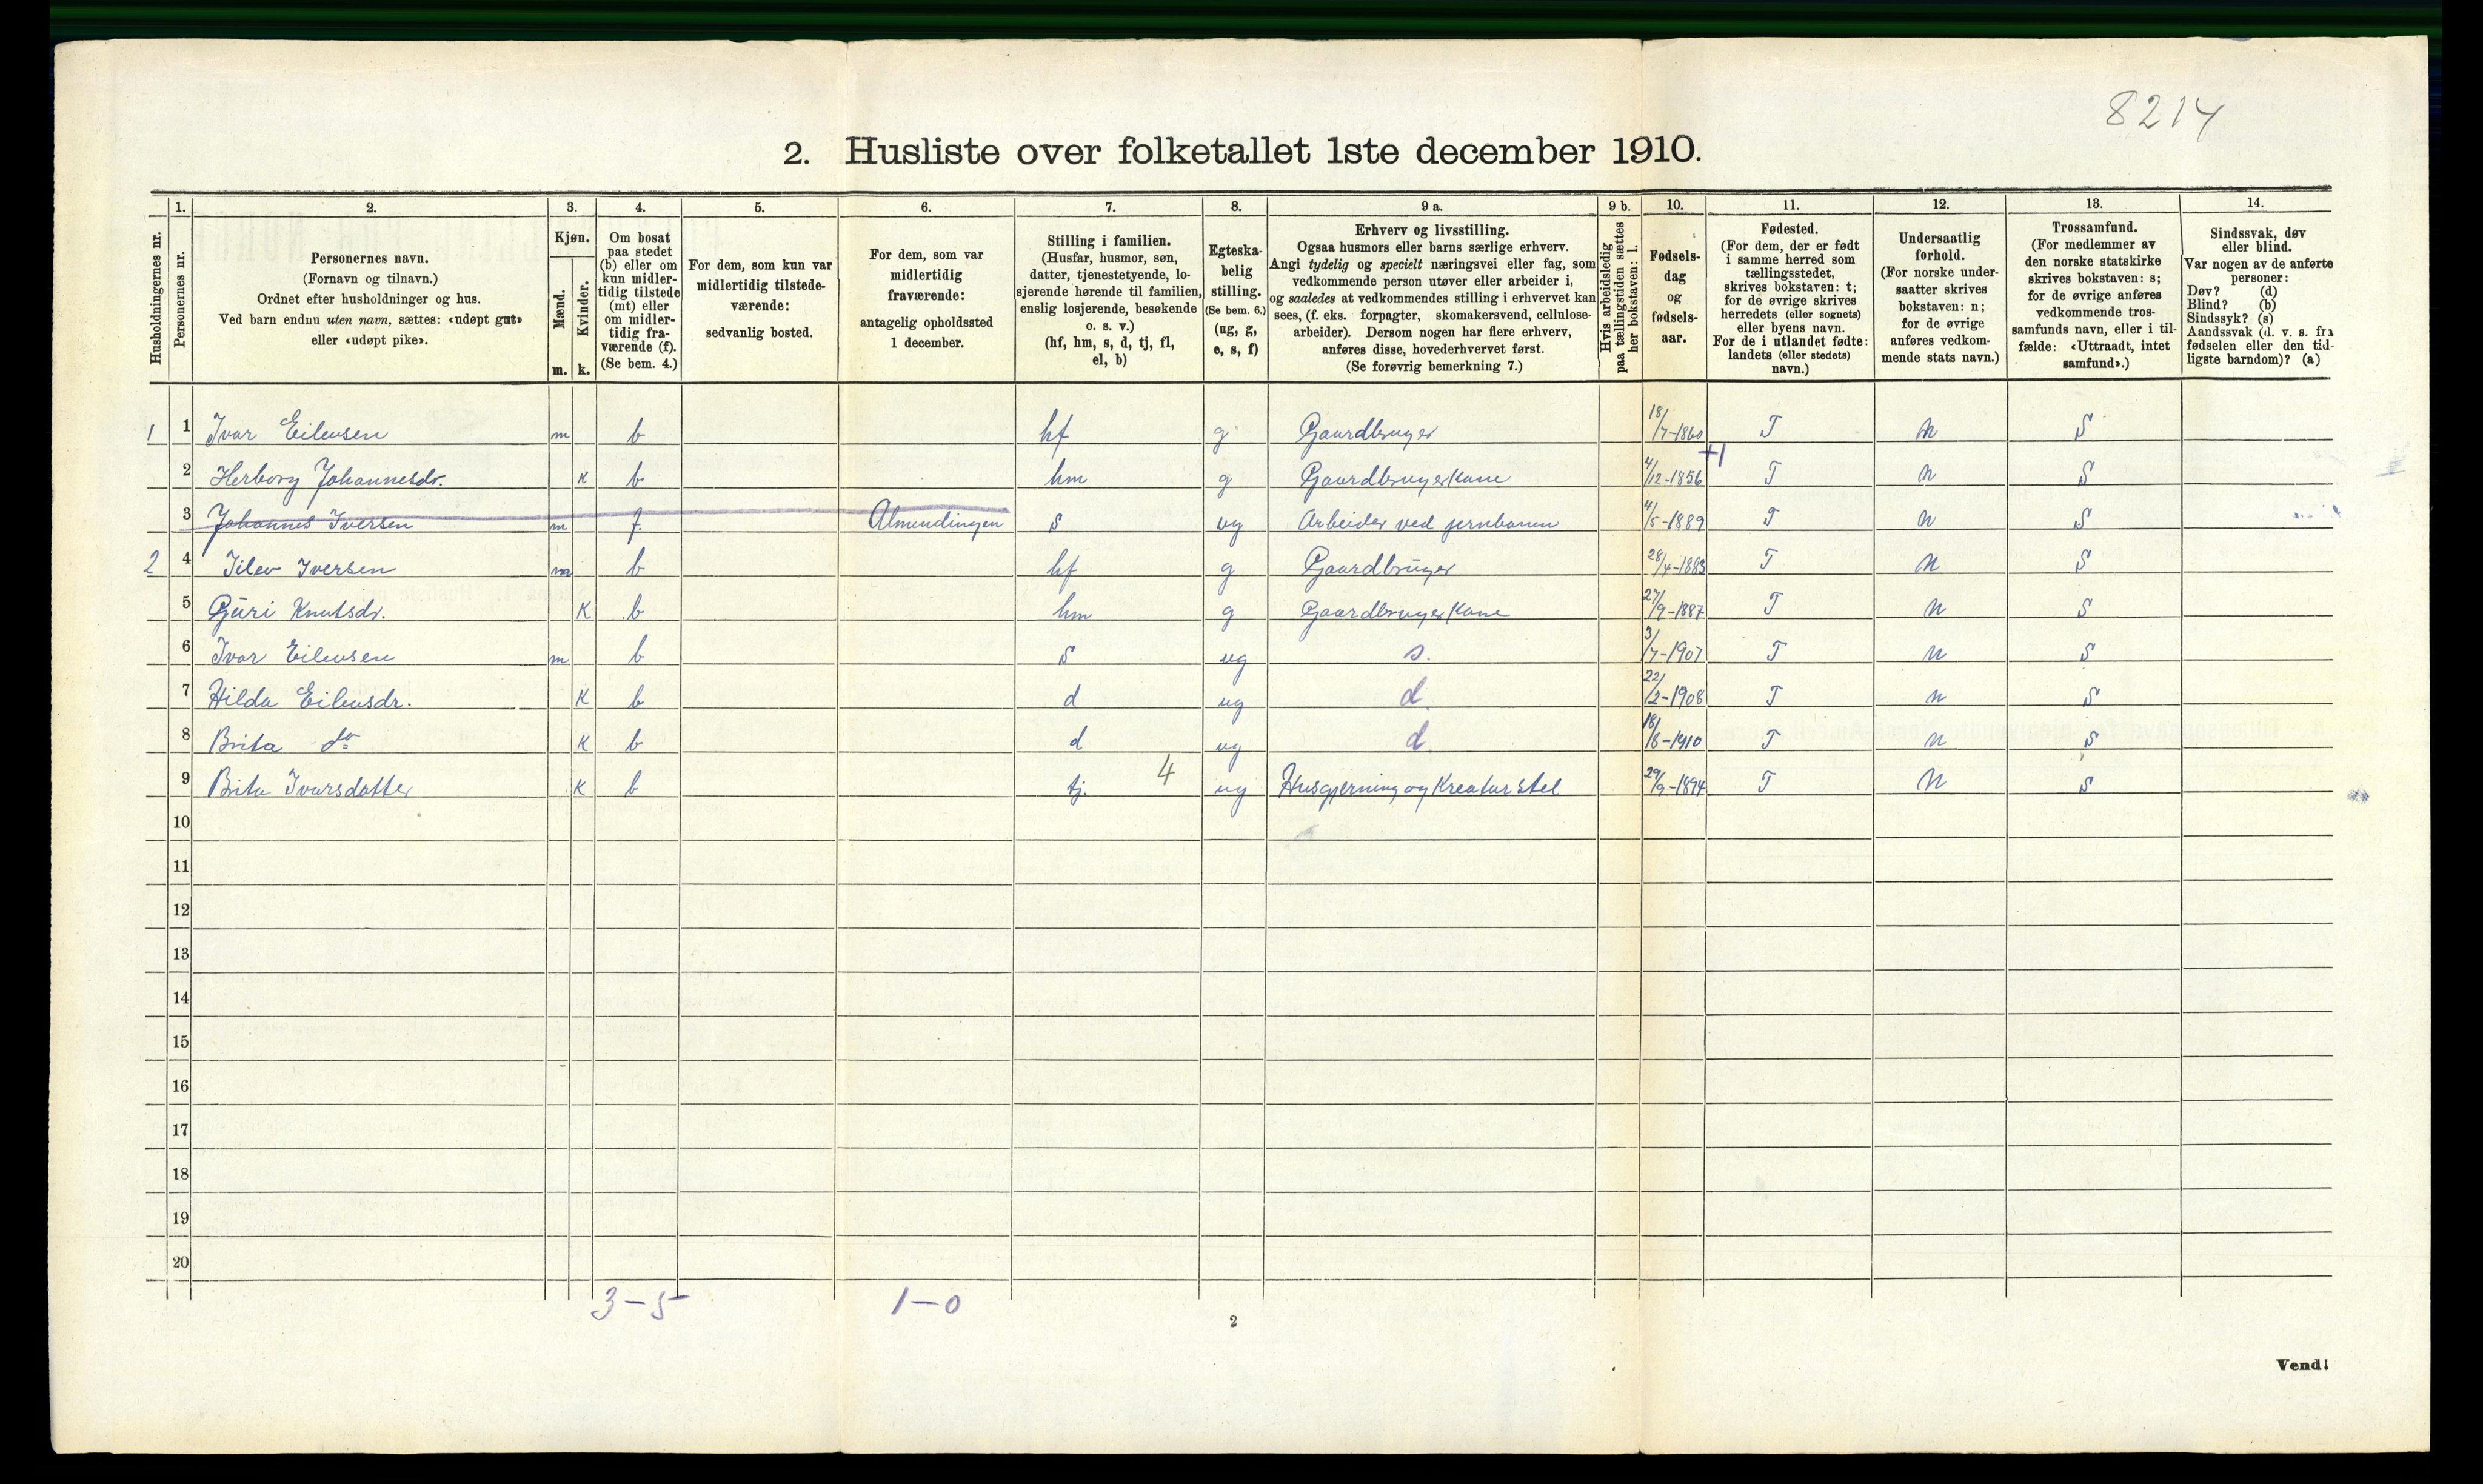 8214
2. Husliste over folketallet 1ste december 1910.
Husholdningernes nr.
1.
Personernes nr.
2.
Personernes navn.
(Fornavn og tilnavn.)
Ordnet efter husholdninger og hus.
Ved barn endnu uten navn, sættes: «udøpt gut»
eller «udøpt pike».
3.
Kjøn.
Mænd.
m.
Kvinder.
k.
4.
Om bosat
paa stedet
(b) eller om
kun midler-
tidig tilstede
(mt) eller
om midler-
tidig fra-
værende (f).
(Se bem. 4.)
5.
For dem, som kun var
midlertidig tilstede-
værende:
sedvanlig bosted.
6.
For dem, som var
midlertidig
fraværende:
antagelig opholdssted
1 december.
7.
Stilling i familien.
(Husfar, husmor, søn,
datter, tjenestetyende, lo-
sjerende hørende til familien,
enslig losjerende, besøkende
o. s. v.)
(hf, hm, s, d, tj, fl,
el, b)
8.
Egteska-
belig
stilling.
(Se bem. 6.)
(ug, g,
e, s, f)
9 a.
Erhverv og livsstilling.
Ogsaa husmors eller barns særlige erhverv.
Angi tydelig og specielt næringsvei eller fag, som
vedkommende person utøver eller arbeider i,
og saaledes at vedkommendes stilling i erhvervet kan
sees, (f. eks. forpagter, skomakersvend, cellulose-
arbeider). Dersom nogen har flere erhverv,
anføres disse, hovederhvervet først.
(Se forøvrig bemerkning 7.)
9 b.
Hvis arbeidsledig
paa tællingstiden sættes
her bokstaven: l.
10.
Fødsels-
dag
og
fødsels-
aar.
11.
Fødested.
(For dem, der er født
i samme herred som
tællingsstedet,
skrives bokstaven: t;
for de øvrige skrives
herredets (eller sognets)
eller byens navn.
For de i utlandet fødte:
landets (eller stedets)
navn.)
12.
Undersaatlig
forhold.
(For norske under-
saatter skrives
bokstaven: n;
for de øvrige
anføres vedkom-
mende stats navn.)
13.
Trossamfund.
(For medlemmer av
den norske statskirke
skrives bokstaven: s;
for de øvrige anføres
vedkommende tros-
samfunds navn, eller i til-
fælde: «Uttraadt, intet
samfund».)
14.
Sindssvak, døv
eller blind.
Var nogen av de anførte
personer:
Døv? (d)
Blind? (b)
Sindssyk? (s)
Aandssvak (d. v. s. fra
fødselen eller den tid-
ligste barndom)? (a)
1 1 Ivar Eilevsen m b hf g Gaardbruger 18/7-1860 T n S
+1
2 Herborg Johannesdr. K b hm g Gaardbrugerkone 4/12-1856 T n S
3 Johannes Iversen m f. Almendingen s ug Arbeider ved jernbanen 4/5-1889 T n S
2 4 Eilev Iversen m b hf g Gaardbruger 28/4-1883 T n S
5 Guri Knutsdr. K b hm g Gaardbrugerkone 27/9-1887 T n S
6 Ivar Eilevsen m b s ug s. 3/7-1907 T n S
7 Hilda Eilevsdr. K b d ug d. 22/2-1908 T n S
8 Brita do K b d ug d. 18/8-1910 T n S
9 Brita Ivarsdatter K b tj. 4 ug Husgjerning og Kreaturstel 29/9-1894 T n S
10
11
12
13
14
15
16
17
18
19
20
3-5 1-0
2
Vend!